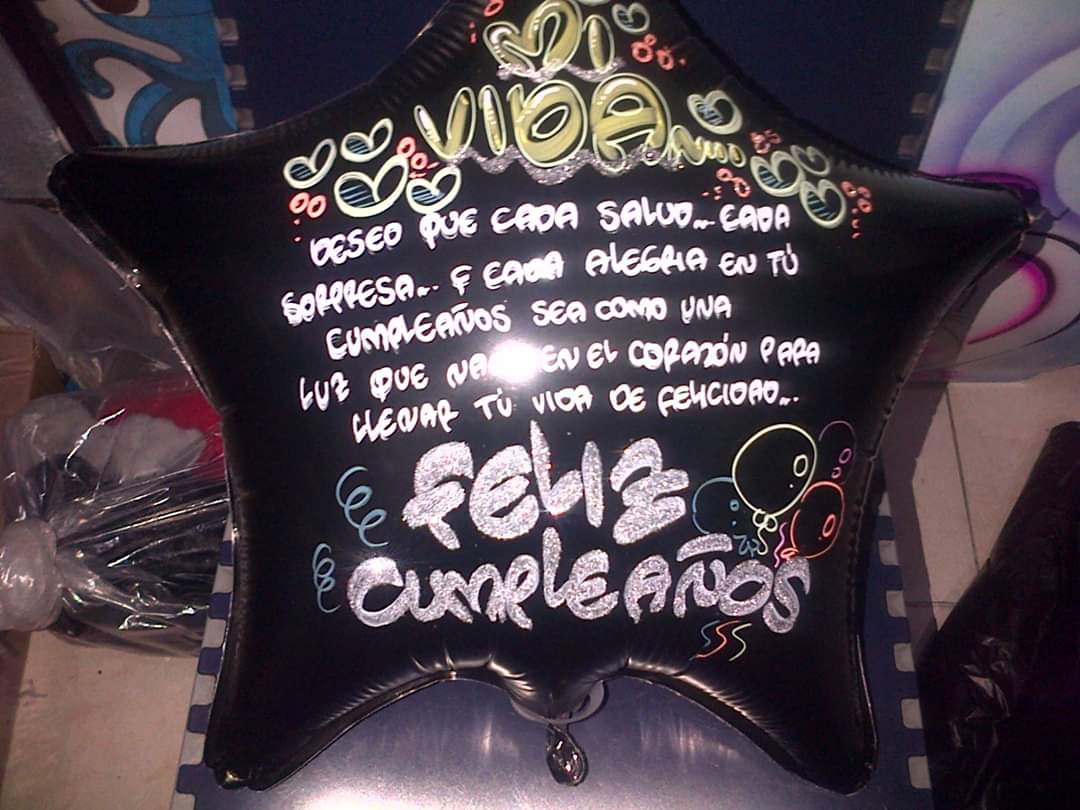 MI
VIDA...
DESEO QUE CADA SALUD... CADA
SORPRESA... Y CADA ALEGRIA EN TÚ
CUMPLEAÑOS SEA COMO UNA
LUZ QUE EN EL CORAZÓN PARA
LLENAR TÚ VIDA DE FELICIDAD...
FELIZ
CUMPLEAÑOS